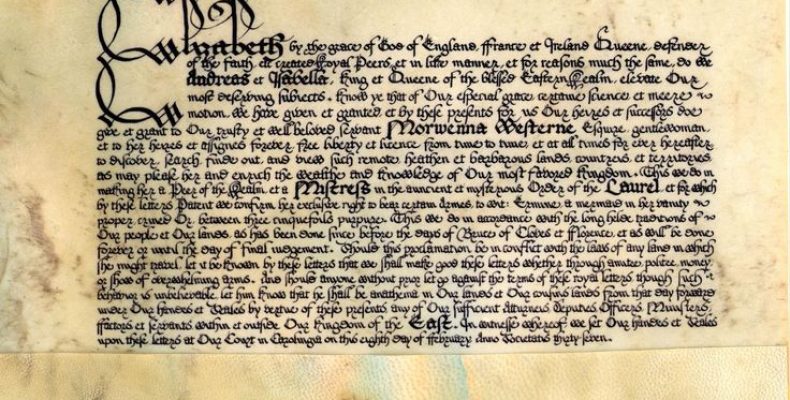 Elyzabeth by the grace of God of England, ffrance et Ireland Queene, defender
of the faith et created Royal Peers, et in like manner, et for reasons much the same, do we
Andreas et Isabella, King et Queene of the blessed Eastern Realm, elevate Our
most deserving subjects. Know ye that of Our especial grace certaine science et meere
motion, we have given et granted et by these presents for us Our heires et successors doe
give et grant to Our trusty et well beloved servant Morwenna Westerne Esquire, gentlewoman,
et to her heires et assignes forever, free liberty et licence from time to time, et at all times for ever hereafter
to discover, search, finde out, and view such remote, heathen et barbarous lands, countreis, et territories
as may please her and enrich the wealthe and knowledge of Our most favored Kingdom. This we do in
making her a Peer of the Realm, et a Mistress in the auncient et mysterious Order of the Laurel, et for which
by these letters Patent we confirm, her exclusive right to bear certain Armes, to wit: Ermine, a mermaid in her vanity
proper crined Or, between three cinquefoils purpure. This we do in accordance with the long helde traditions of
Our people et Our lands, as has been done since before the days of Bruce of Cloves et fflorence, et as will be done
forever or until the day of final judgement. Should this proclamation be in conflict with the laws of any land in which
she might travel, let it be known, by these letters that we shall make good these letters whether through amitie, politie, money,
or show of overwhelming arms. And should anyone without prior let go against the terms of these royal letters, though such
behavior is unbelievable, let him know that he shall be anathema in Our lands et Our cousins lands from that day forward
under Our handes et Seales by vertue of these presents, any of Our sufficient Atturneis, Deputies, Officers, Ministers,
ffactors et servants within et outside Our Kingdom of the East. In witnesse whereof we set Our handes et Seales
upon these letters at Our Court in Carolingia on this eighth day of ffebruary, Anno Societatis thirty seven.